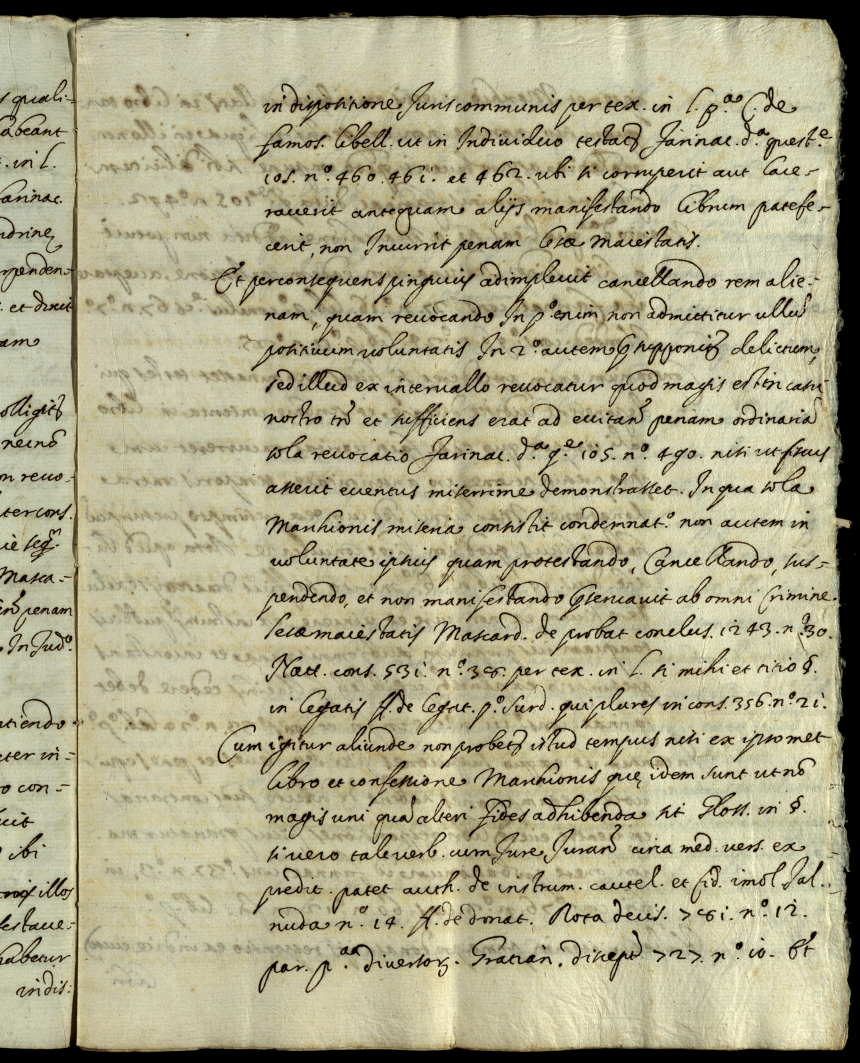 s quali-
abeant
. in l.
arinac.
ndrinę
rpenden-
. et dixit
am
olligitʒ
necnõ
m reuo-
ter cons.
Masca-
penam
In Jud.º
tiendo
eter in-
o con-
ibi
illos
abetur
indis:
in dispositione Juris communis per tex. in l. p.ª C. de
famos. libell. ut in Indiuiduo testatʒ Farinac. d.ª quest.e
105. n.º 460. 461. et 462. ubi si corruperit aut lace-
rauerit antequam alijs manifestando librum patefe-
cerit, non Incurrit penam lesæ maiestatis.
Et per consequens pinguius adimpleuit cancellando rem alie-
nam, quam reuocando In p.º enim non admictitur ullũ
positiuum voluntatis In 2.º autem supponitʒ delictum,
sed illud ex interuallo reuocatur quod magis est in casu
nostro et sufficiens erat ad euitan̄ penam ordinariã
sola reuocatio Farinac. d.ª q.e 105. n.º 490. nisi ut fiscus
asserit euentus miserrime demonstrasset. In qua sola
Marchionis miseria consistit condemnat.º non autem in
voluntate ipsius quam protestando, Cancellando, sus-
pendendo, et non manifestando ab omni Crimine
lesæ maiestatis Mascard. de probat. conclus. 1243. n.º 30.
Natt. cons. 531. n.º 38. per tex. in l. si mihi et titio §.
in legatis ff. de legat. p.º Surd. qui plures in cons. 356. n.º 21.
Cum igitur aliunde non probetʒ istud tempus nisi ex ipsomet
libro et confessione Marchionis quę idem sunt ut nõ
magis uni quã alteri fides adhibenda sit Gloss. in §.
si uero tale verb. cum Jure Juran̄ circa med. vers. ex
predit. patet auth. de instrum. cautel. et fid. imol.
nuda n.º 14. ff. de donat. Rota decis. 781. n.º 12.
par. p.ª diuersorʒ. Gratian. discept. 727. n.º 10. Et